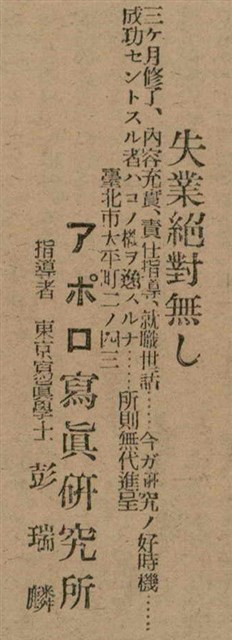 失業絕對無し
三ケ月修了、內容充實、責任指導、就職世話……今ガ研究ノ好時機……
成功セントスル者ハコノ機ヲ逸スルナ……所則無代進呈
臺北市太平町二ノ四三
アポロ寫眞硏究所
指導者 東京寫眞學士 彭瑞麟